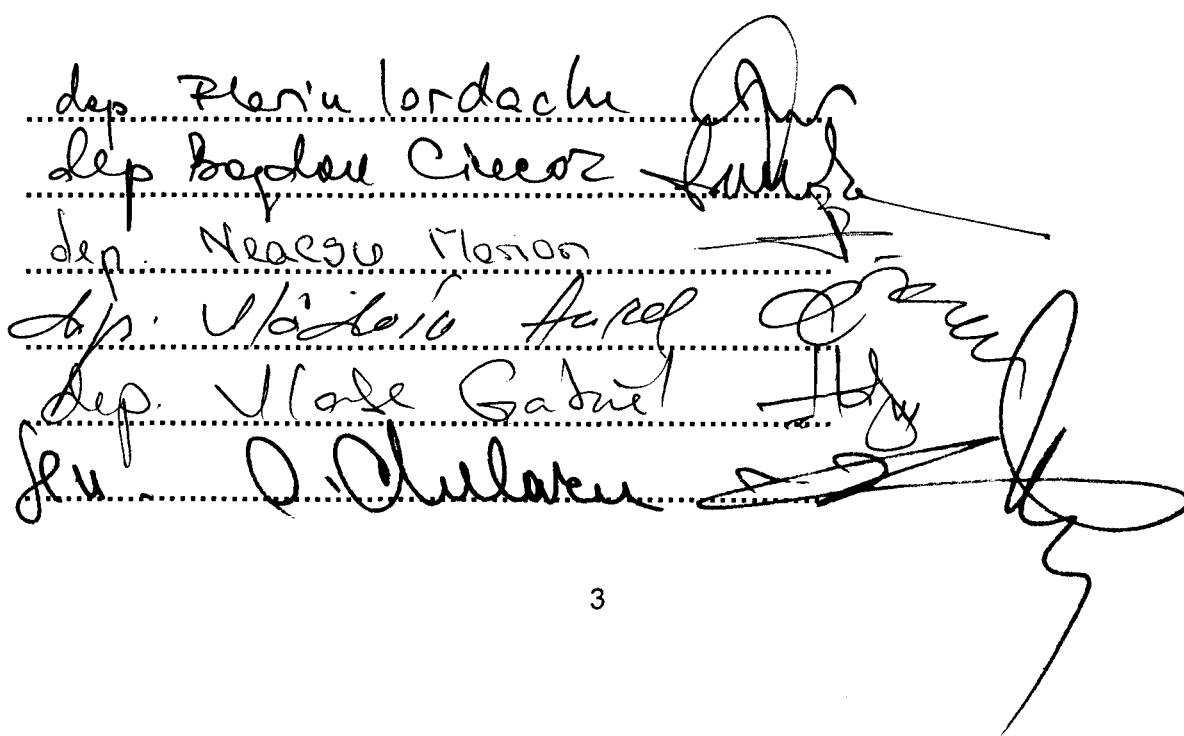 dep. Florin Iordache
dep Bogdan Ciuca
dep. Neacsu Marian
dep. Vlădoiu Aurel
dep. Vlase Gabriel
Sen.
3